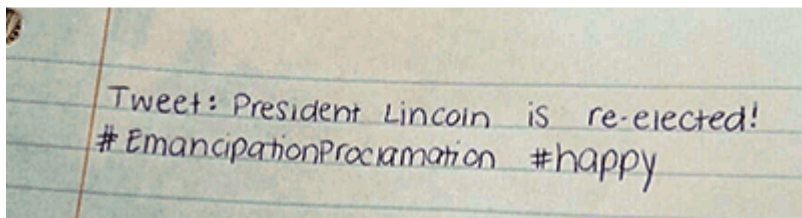 Tweet: President Lincoln is re-elected!
#EmancipationProclamation #happy